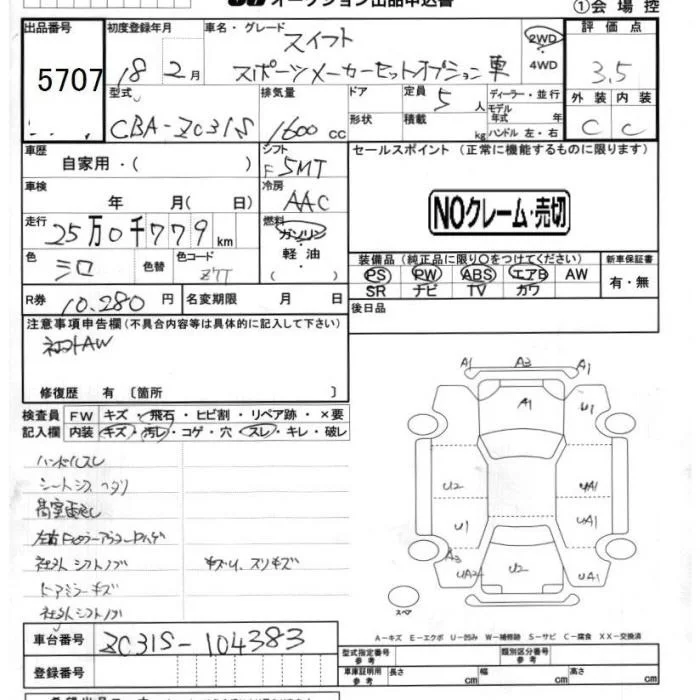 オークション出品申込書
①会場控
出品番号 初度登録年月 車名・グレード スイフト 2WD 評価点
5707 18 2月 スポーツメーカーセットオプション車 4WD 3.5
型式 排気量 ドア 定員 5人 ディーラー・並行 外装 内装
モデル年式 年
CBA-ZC31S 1600cc 形状 積載 kg ハンドル 左・右 C C
車歴 シフト セールスポイント (正常に機能するものに限ります)
自家用・( ) F5MT
車検 冷房
年 月( 日) AAC NOクレーム・売切
走行 燃料
25万0千779km ガソリン
色 色替 色コード 軽油・ 装備品(純正品に限り○をつけてください) 新車保証書
シロ Z7T ( ) PS PW ABS エアB AW 有・無
SR ナビ TV カワ
R券 10.280円 名変期限 月 日 後日品
注意事項申告欄(不具合内容等は具体的に記入して下さい)
AW
修復歴 有〔箇所 〕
検査員 FW キズ・飛石・ヒビ割・リペア跡・×要
記入欄 内装 キズ・汚レ・コゲ・穴・スレ・キレ・破レ
ハンドルスレ
社外シフトノブ キズU、スリキズ
ドアミラーキズ
社外シフトノブ
A1 A3 A1
A1 U1
U2 UA1
U1 UA1
A3
UA2 U2 UA1
スペア
A-キズ E-エクボ U-凹み W-補修跡 S-サビ C-腐食 XX-交換済
車台番号 ZC31S-104383
型式指定番号 参考 類別区分番号 参考
登録番号 車庫証明用 参考 長さ cm 幅 cm 高さ cm